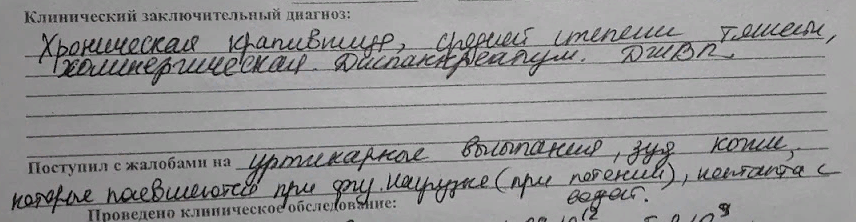 Клинический заключительный диагноз:
Хроническая крапивница, средней степени тяжести,
холинергическая. Диспанкреатизм. ДЖВП.
Поступил с жалобами на уртикарные высыпания, зуд кожи,
которые появляются при физ. нагрузке (при потении), контакта с
водой.
Проведено клиническое обследование:
10¹² 10⁹